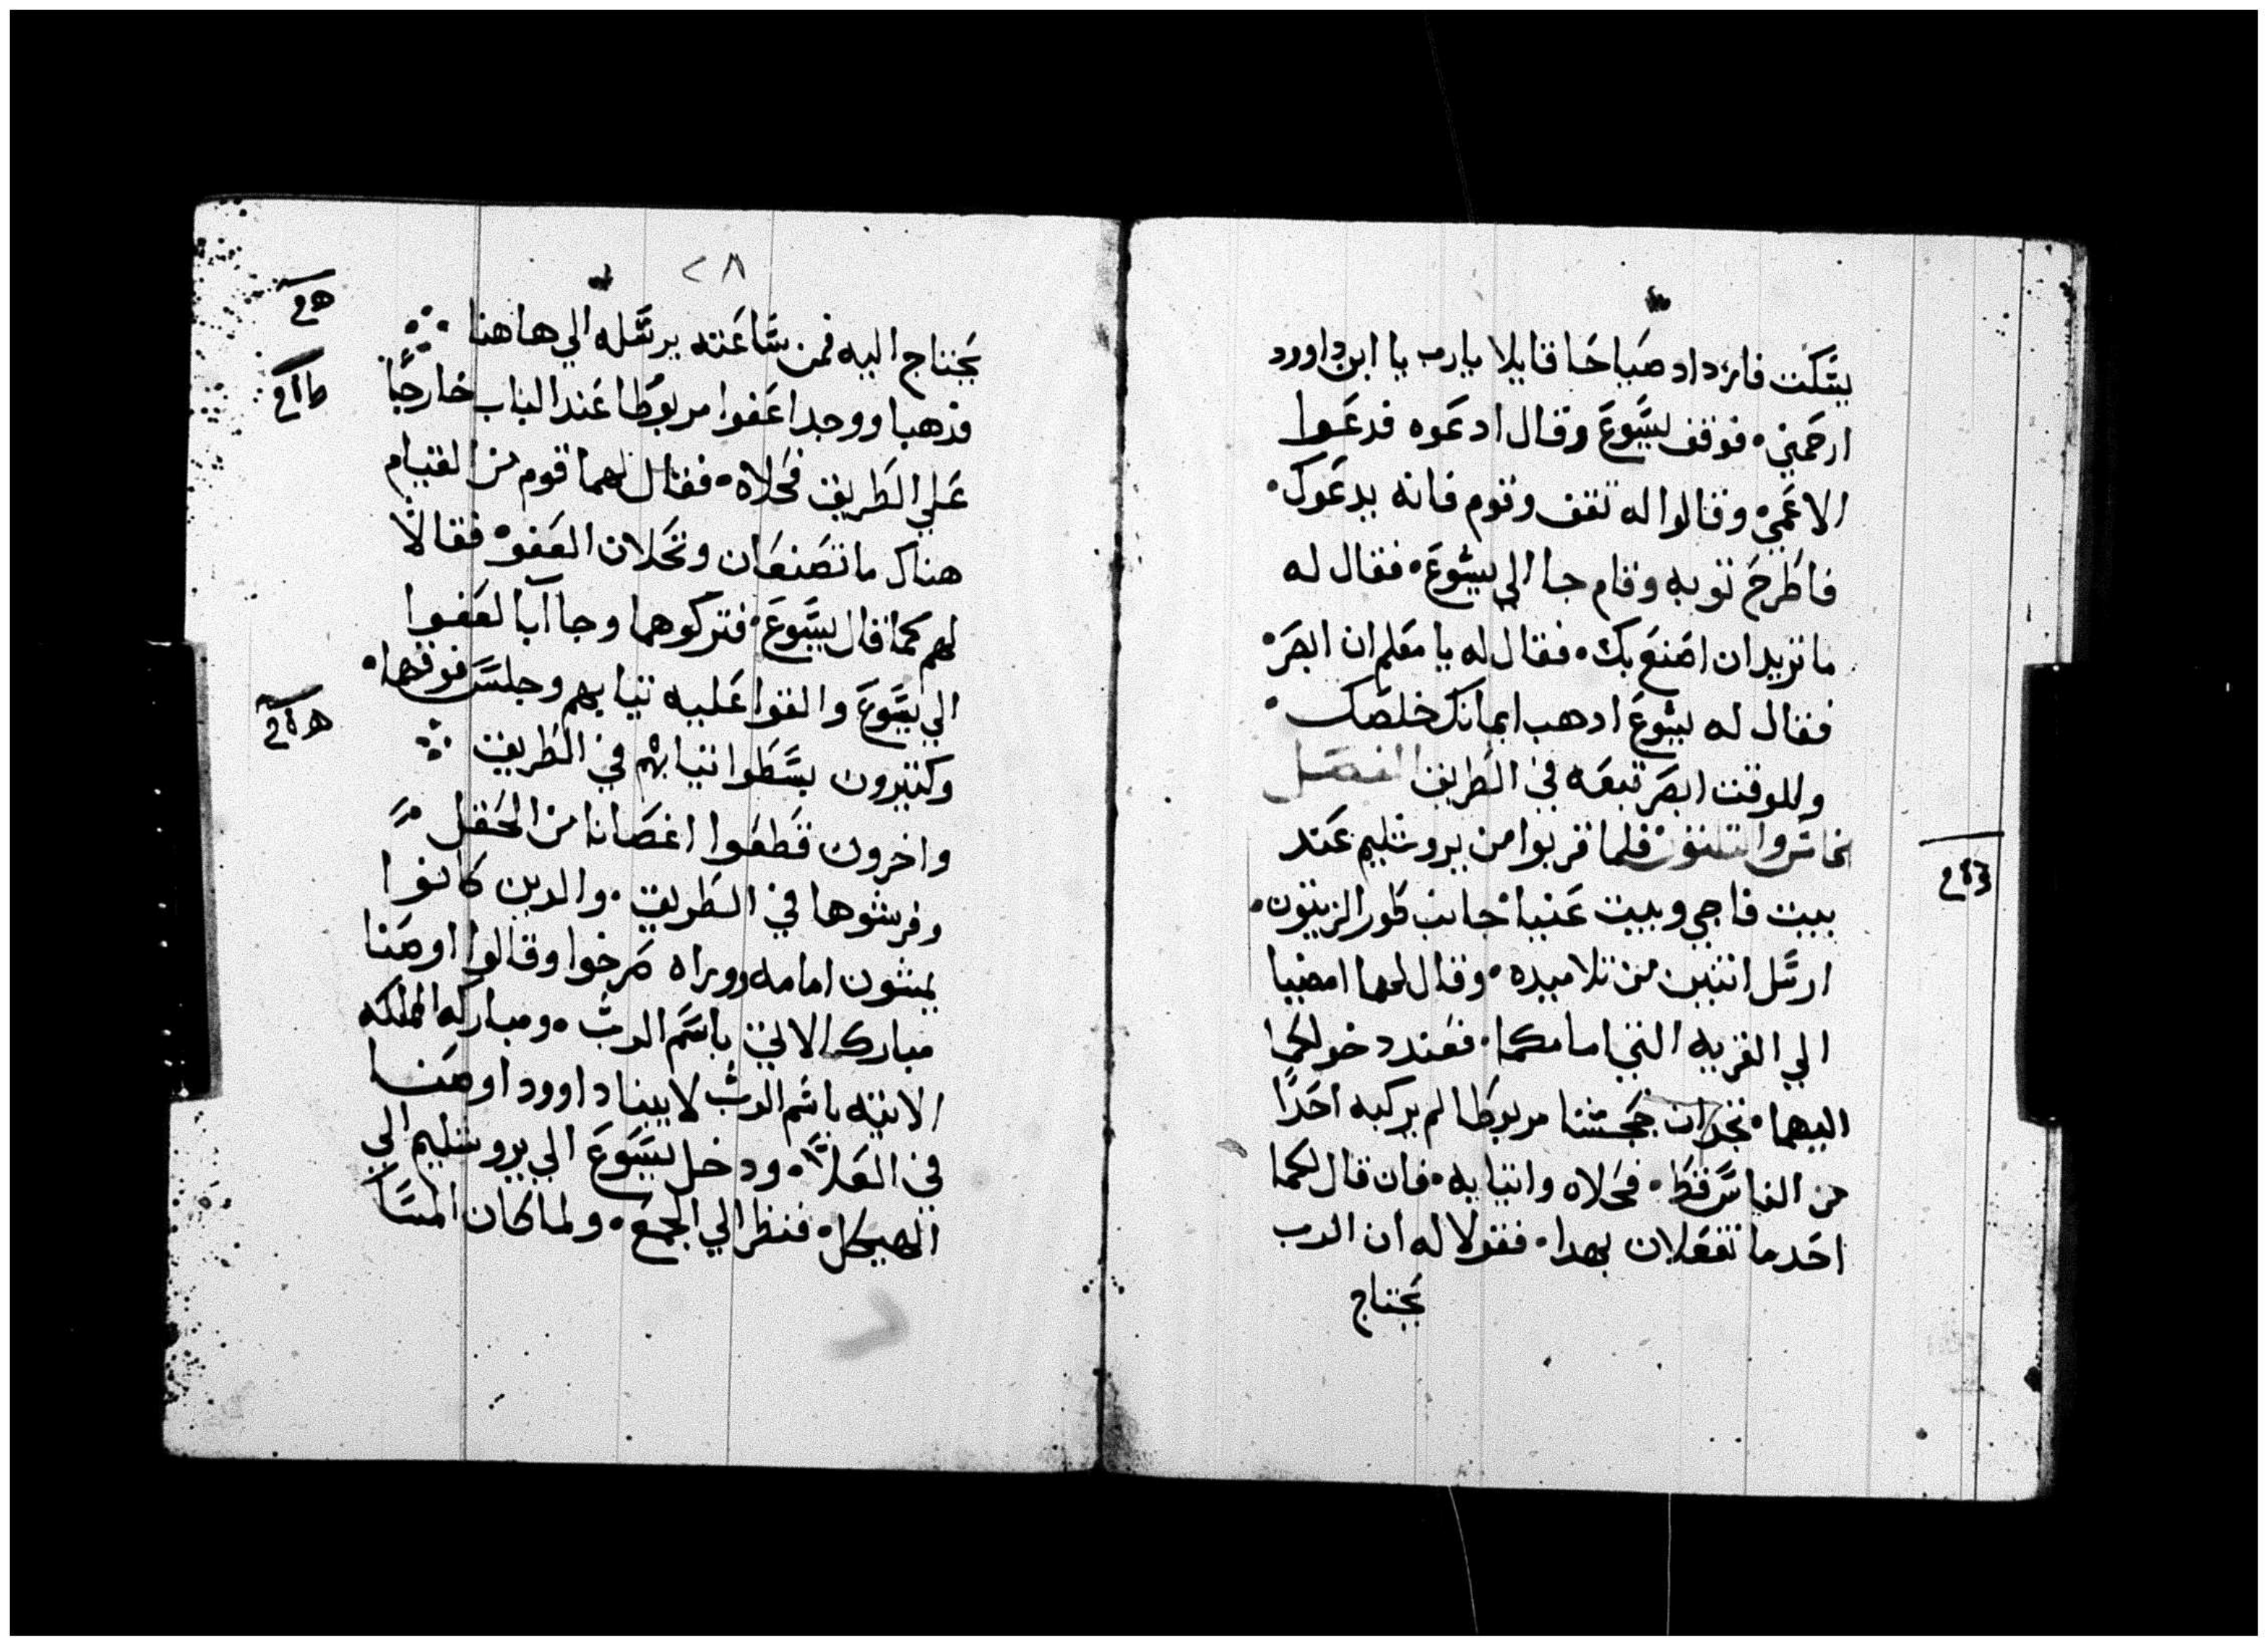 يسَّكت فازداد صَياحَا قايلا يارب يا ابن داوود
ارحَمني • فوقف يسَّوعَ وقال ادعَوه فدعَوا
الاعَمي • وقالوا له تقف وقوم فانه يدعَوك •
فاطَرحَ توبه وقام جا الي يسَّوعَ • فقال له
ما تريد ان اصَنعَ بك • فقال له يا معَلم ان ابصَر •
فقال له يسَّوعَ ادهب ايمانك خلصَك •
وللوقت ابصَر تبعَه في الطَريق الفصَل
فلما قربوا من يروشليم عَند
بيت فاجي وبيت عَنيا • جانب طَور الزيتون •
ارسَّل اتنين من تلاميده • وقال لهما امضيا
الي القريه التي امامكما • فعَند دخولكما
اليها • تجدان جحَشا مربوطَا لم يركبه احَدًا
من الناسَّ قطَ • فحَلاه واتيا به • فان قال لكما
احَد ما تفعَلان بهدا • فقولا له ان الرب
يحَتاج
٢٨
يحَتاج اليه فمن سَّاعَته يرسَّله الي هاهنا
فدهبا ووجدا عَفوا مربوطَا عَند الباب خارجًا
عَلي الطَريق فحَلاه • فقال لهما قوم من القيام
هناك ما تصَنعَان وتحَلان العَفو • فقالا
لهم كما قال يسَّوعَ • فتركوهما وجاآ بالعَفوا
الي يسَّوعَ والقوا عَليه تيابهم وجلسَّ فوقها •
وكتيرون بسَّطَوا تيابهم في الطَريق
واخرون قطَعَوا اغصَانا من الحَقل
وفرشوها في الطَريق • والدين كانوا
يمشون امامه ووراه صَرخوا وقالوا اوصَنا
مبارك الاتي باسَّم الرب • ومباركه المملكه
الاتيه باسَّم الرب لابينا داوود اوصَنا
في العَلا • ودخل يسَّوعَ الي يروشليم الي
الهيكل • فنظر الي الجمعَ • ولما كان المسَّا